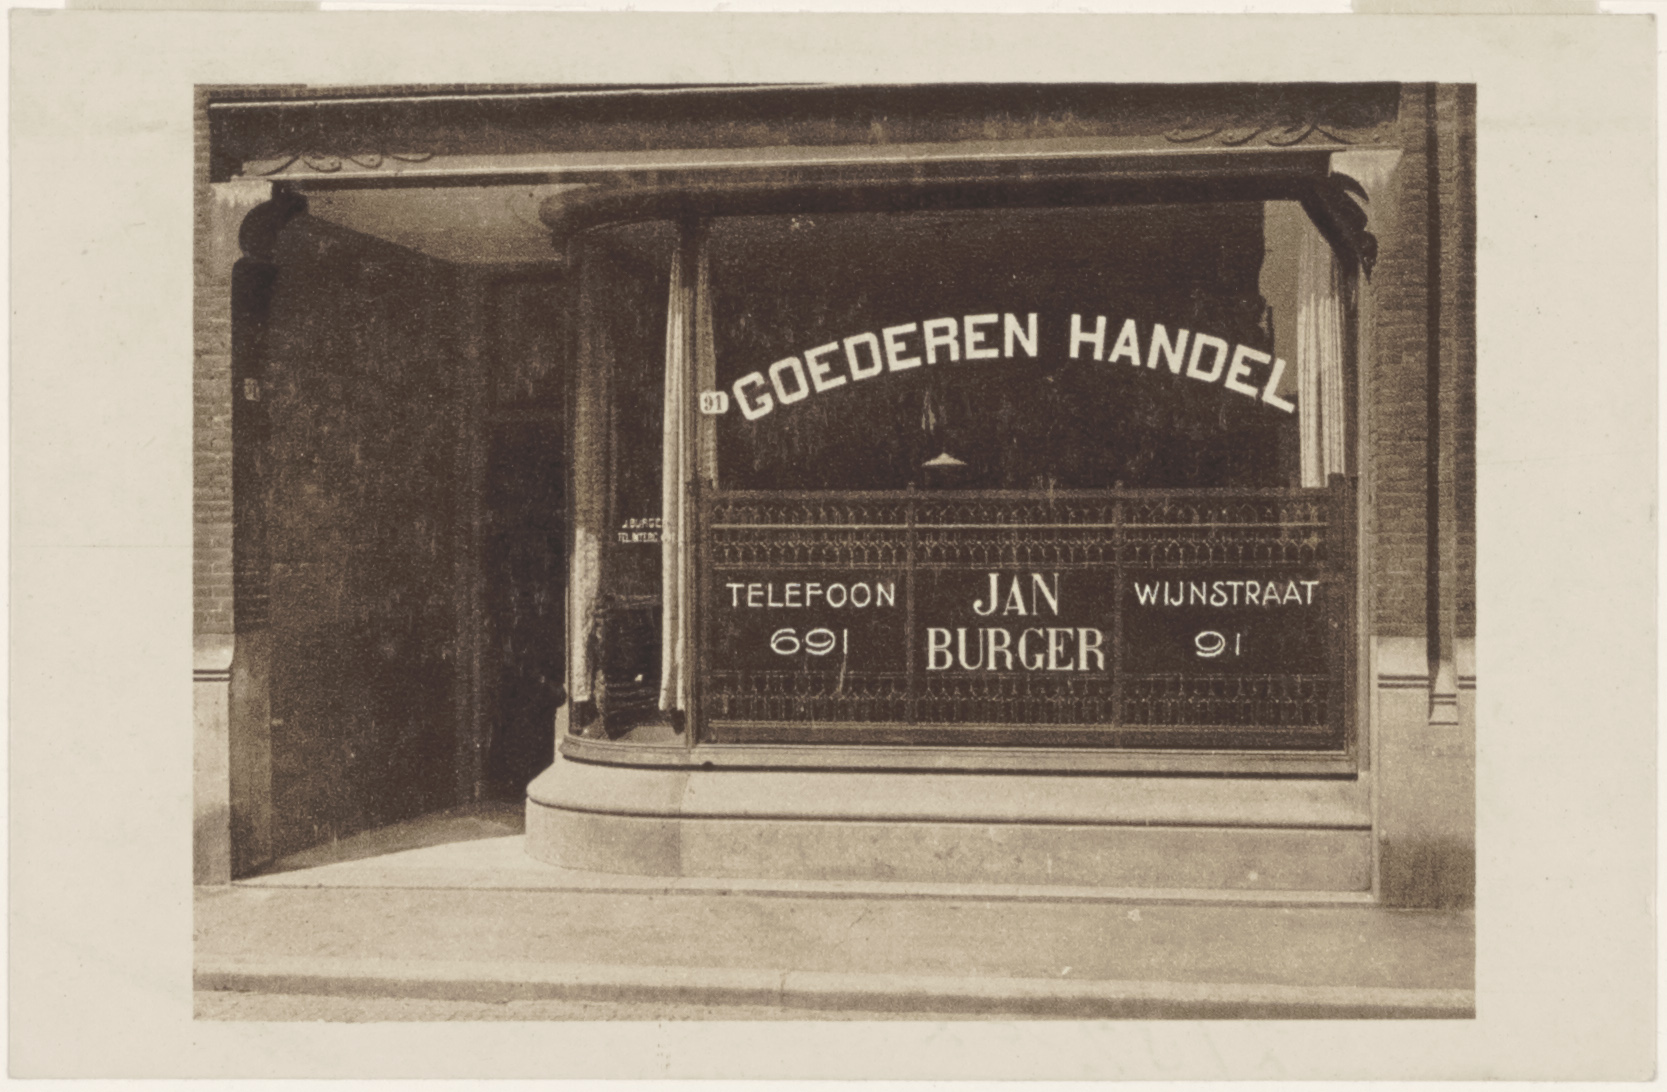 91
GOEDEREN HANDEL
J BURGER
TEL. INTERC.
TELEFOON
691
JAN
BURGER
WIJNSTRAAT
91